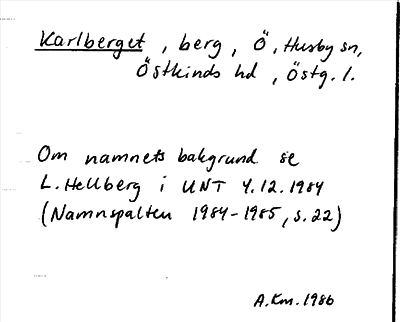 Karlberget, berg, Ö, Husby sn,
Östkinds hd, Östg. l.
Om namnets bakgrund se
L. Hellberg i UNT 4.12.1984
(Namnspalten 1984-1985, s. 22)
A.Km. 1986